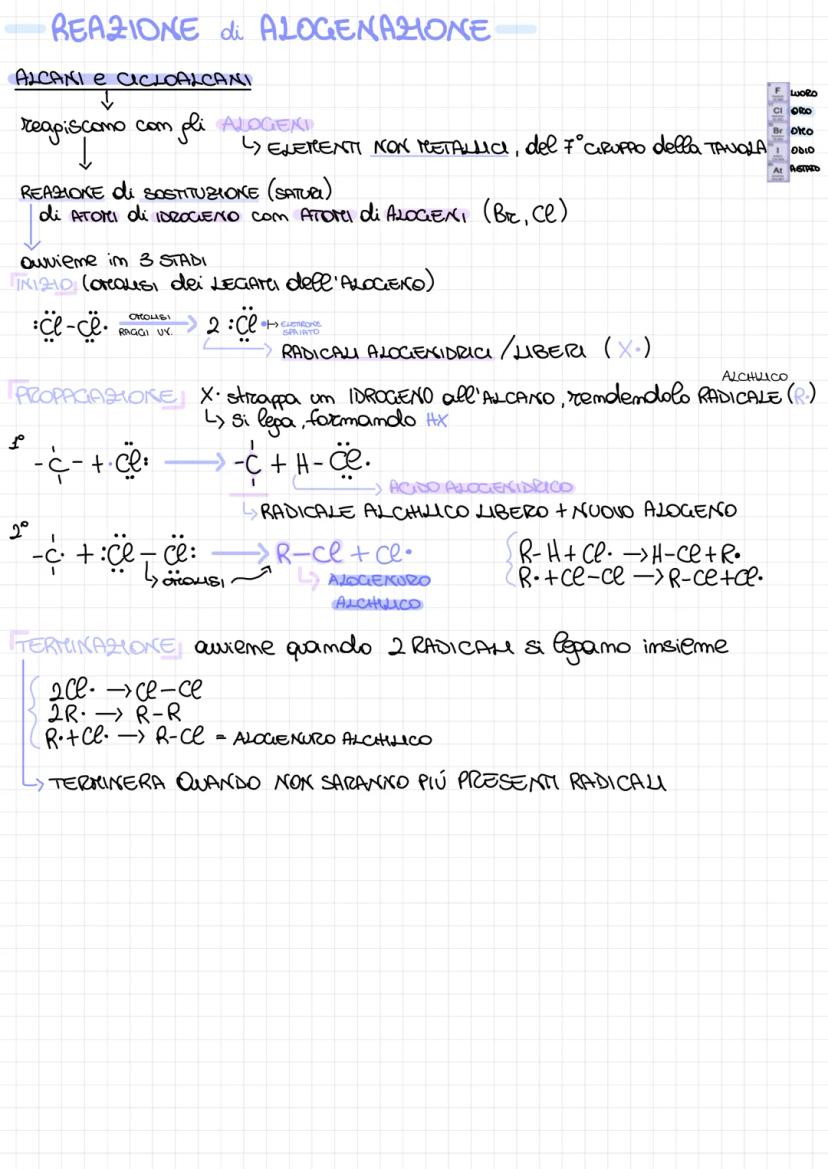 REAZIONE di ALOGENAZIONE
ALCANI e CICLOALCANI
reagiscono con gli ALOGENI
↳ ELEMENTI NON METALLICI, del 7° GRUPPO della TAVOLA
F LUORO
Cl ORO
Br OMO
I ODIO
At ASTATO
REAZIONE di SOSTITUZIONE (SATURI)
di ATOMI di IDROGENO con ATOMI di ALOGENI (Br, Cl)
avviene in 3 STADI
INIZIO (OMOLISI dei LEGAMI dell'ALOGENO)
:Cl-Cl. OMOLISI RAGGI UV. → 2 :Cl• ↦ ELETTRONE SPAIATO
→ RADICALI ALOGENIDRICI / LIBERI (X•)
ALCHILICO
PROPAGAZIONE X• strappa un IDROGENO all'ALCANO, rendendolo RADICALE (R•)
↳ si lega, formando HX
1° -C- + •Cl: → -C + H-Cl.
→ ACIDO ALOGENIDRICO
↳ RADICALE ALCHILICO LIBERO + NUOVO ALOGENO
2° -C• + :Cl-Cl: → R-Cl + Cl•
R-H + Cl• → H-Cl + R•
↳ OMOLISI
↳ ALOGENURO
R• + Cl-Cl → R-Cl + Cl•
ALCHILICO
TERMINAZIONE avviene quando 2 RADICALI si legano insieme
2Cl• → Cl-Cl
2R• → R-R
R• + Cl• → R-Cl = ALOGENURO ALCHILICO
↳ TERMINERA QUANDO NON SARANNO PIÚ PRESENTI RADICALI